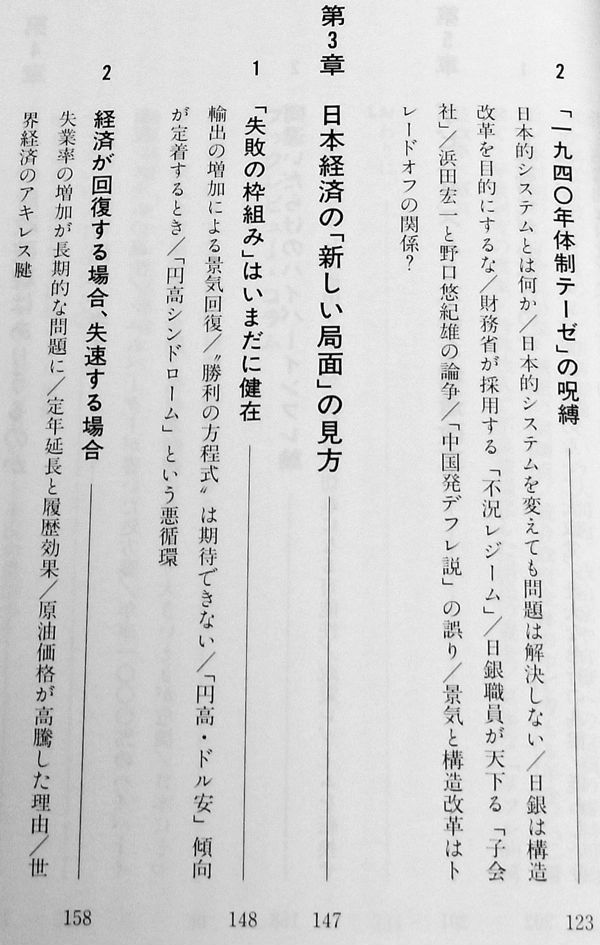 2 「一九四〇年体制テーゼ」の呪縛 123
日本的システムとは何か／日本的システムを変えても問題は解決しない／日銀は構造
改革を目的にするな／財務省が採用する「不況レジーム」／日銀職員が天下る「子会
社」／浜田宏一と野口悠紀雄の論争／「中国発デフレ説」の誤り／景気と構造改革はト
レードオフの関係？
第3章 日本経済の「新しい局面」の見方 147
1 「失敗の枠組み」はいまだに健在 148
輸出の増加による景気回復／〝勝利の方程式〟は期待できない／「円高・ドル安」傾向
が定着するとき／「円高シンドローム」という悪循環
2 経済が回復する場合、失速する場合 158
失業率の増加が長期的な問題に／定年延長と履歴効果／原油価格が高騰した理由／世
界経済のアキレス腱